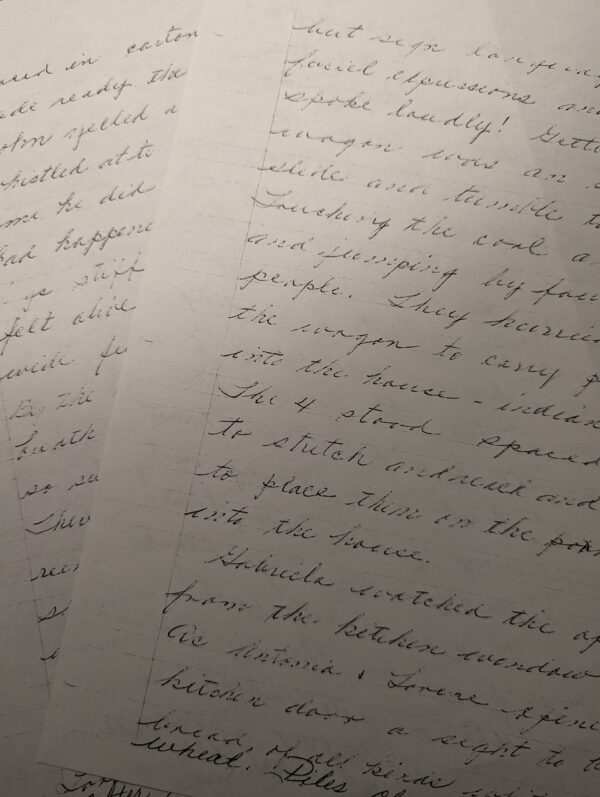 in carton
ready the
yelled a
whistled at
he did
had happene
stiff
felt alive
wide
By the
breath
so
They
but sign
facial expressions and
spoke loudly! Getti
wagon was an
slide and tumble to
Touching the cool
and jumping by fou
people. They hurrie
the wagon to carry
into the house - indian
The 4 stood spaced
to stretch and reach and
to place them on the
into the house.
Gabriela watched the
from the kitchen window
As Antonia & Lorene opene
kitchen door a sight to
bread of all kinds
wheat. Piles